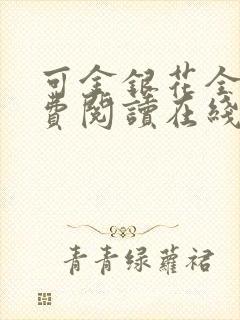 可金銀花全
費閱讀在綫
青青绿蘿裙